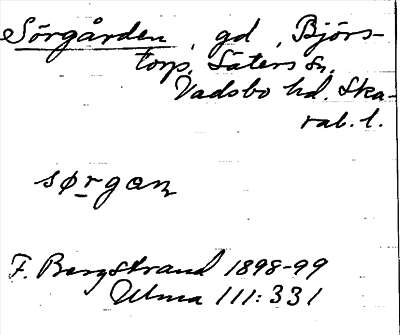 Sörgården, gd, Björs-
torp, Säters sn,
Vadsbo hd. Ska-
rab. l.
sørgan
F. Bergstrand 1898-99
Ulma 111:331